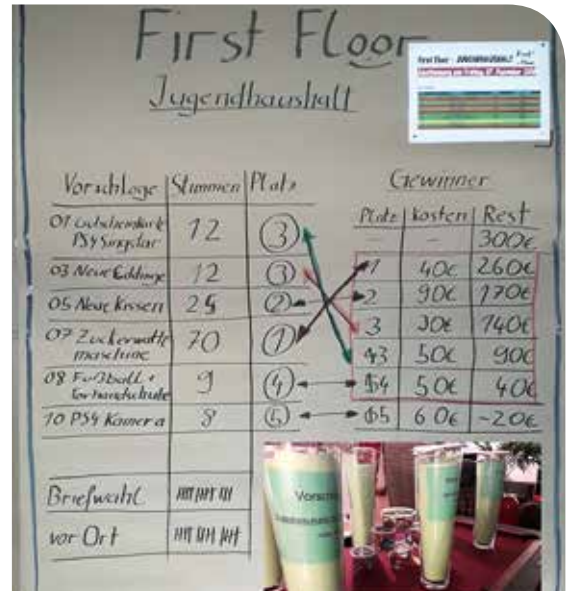 First Floor
Jugendhaushalt
Vorschläge Stimmen Platz
01 Gutscheinkarte PS4 Singstar 12 3
03 Neue Eddinge 12 3
05 Neue Kissen 25 2
07 Zuckerwatte maschine 70 1
08 Fußball + Torhandschuhe 9 4
10 PS4 Kamera 8 5
Briefwahl
vor Ort
Gewinner
Platz Kosten Rest
- - 300€
1 40€ 260€
2 90€ 170€
3 30€ 140€
3 50€ 90€
4 50€ 40€
5 60€ -20€
Vorsch